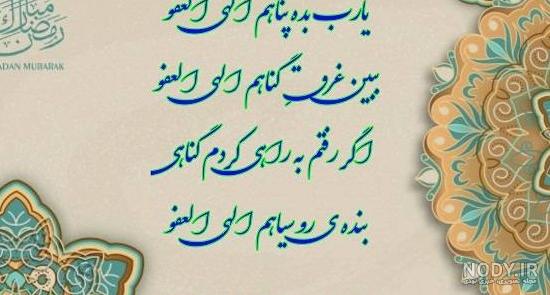 یارب بده پناهم الهی العفو
مبارک
رمضان
ADAN MUBARAK
ببین غرقِ گناهم الهی العفو
اگر رفتم به راهی کردم گناهی
بنده ی رو سیاهم الهی العفو
NODY.IR
مجله تصویری، خبری نودی